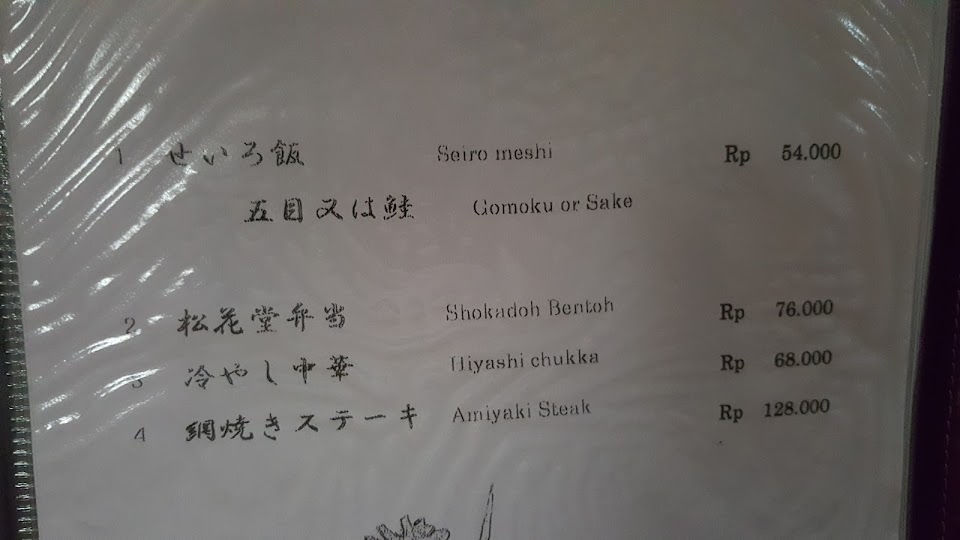 1 せいろ飯 Seiro meshi Rp 54.000
五目又は鮭 Gomoku or Sake
2 松花堂弁当 Shokadoh Bentoh Rp 76.000
3 冷やし中華 Hiyashi chukka Rp 68.000
4 網焼きステーキ Amiyaki Steak Rp 128.000